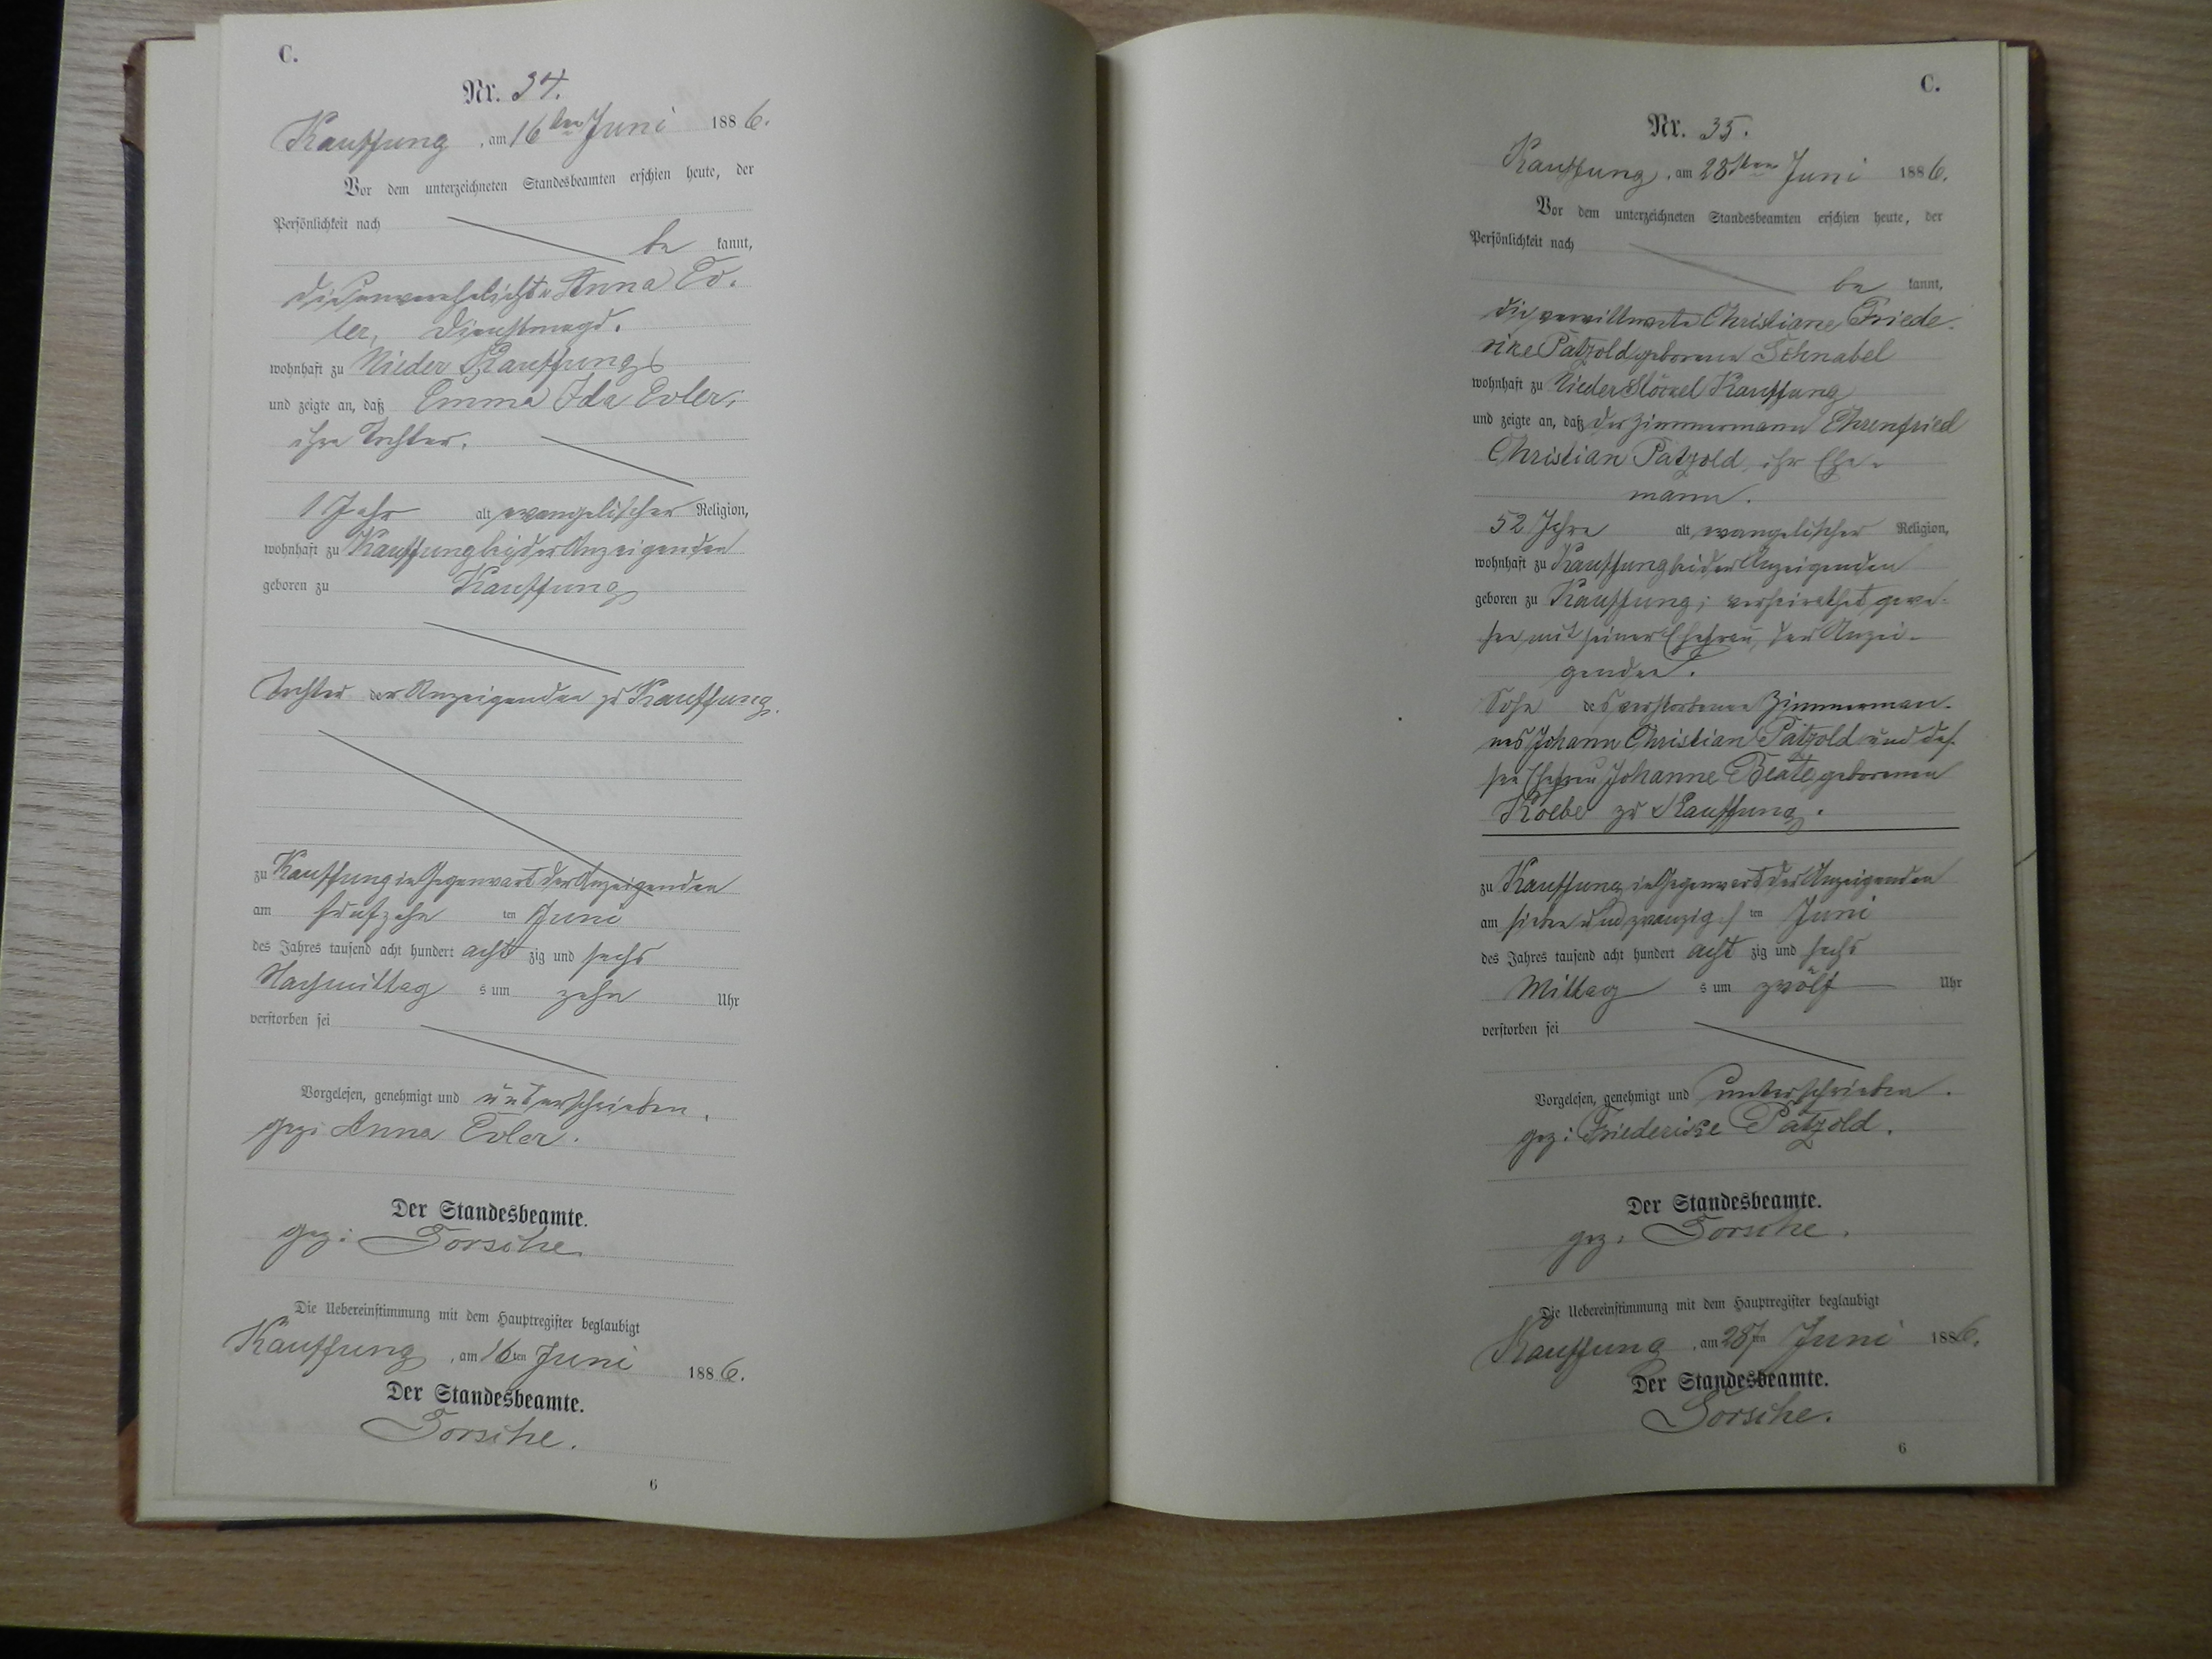 C.
Nr. 34.
Kauffung, am 16ten Juni 1886.
Vor dem unterzeichneten Standesbeamten erschien heute, der
Persönlichkeit nach
be kannt,
die unverehelichte Anna Ev-
ler, Dienstmagd.
wohnhaft zu Nieder Kauffung
und zeigte an, daß Emma Ida Evler,
ihre Tochter.
1 Jahr alt, evangelischer Religion,
wohnhaft zu Kauffung bei der Anzeigenden
geboren zu Kauffung
Tochter der Anzeigenden zu Kauffung.
zu Kauffung in Gegenwart der Anzeigenden
am fünfzehn ten Juni
des Jahres tausend acht hundert acht zig und sechs
Nachmittag s um zehn Uhr
verstorben sei
Vorgelesen, genehmigt und unterschrieben.
gez: Anna Evler.
Der Standesbeamte.
gez: Torsche.
Die Uebereinstimmung mit dem Hauptregister beglaubigt
Kauffung, am 16ten Juni 1886.
Der Standesbeamte.
Torsche.
6
C.
Nr. 35.
Kauffung, am 28sten Juni 1886.
Vor dem unterzeichneten Standesbeamten erschien heute, der
Persönlichkeit nach
be kannt,
die verwittwete Christiane Friede-
rike Pätzold geborene Schnabel
wohnhaft zu Nieder Stöckel Kauffung
und zeigte an, daß der Zimmermann Ehrenfried
Christian Pätzold, ihr Ehe-
mann.
52 Jahre alt, evangelischer Religion,
wohnhaft zu Kauffung bei der Anzeigenden
geboren zu Kauffung; verheirathet gewe-
sen mit seiner Ehefrau, der Anzei-
genden.
Sohn des verstorbenen Zimmerman-
nes Johann Christian Pätzold und des-
sen Ehefrau Johanne Beate, geborenen
Kolbe zu Kauffung.
zu Kauffung in Gegenwart der Anzeigenden
am sieben und zwanzigs ten Juni
des Jahres tausend acht hundert acht zig und sechs
Mittag s um zwölf Uhr
verstorben sei
Vorgelesen, genehmigt und unterschrieben.
gez: Friederike Pätzold.
Der Standesbeamte.
gez: Torsche.
Die Uebereinstimmung mit dem Hauptregister beglaubigt
Kauffung, am 28sten Juni 1886.
Der Standesbeamte.
Torsche.
6